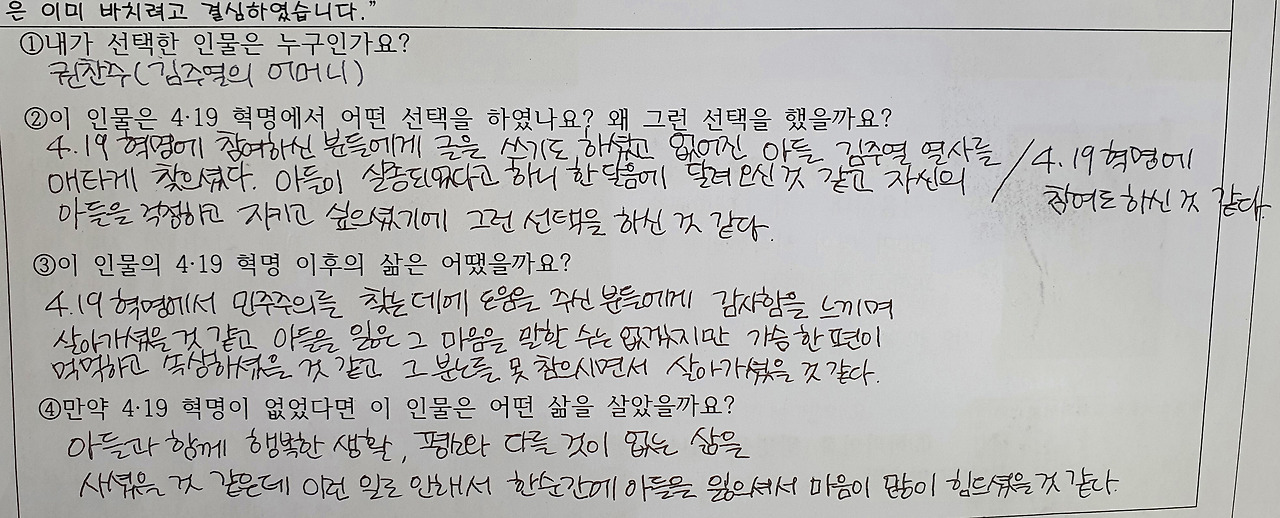 은 이미 바치려고 결심하였습니다."
①내가 선택한 인물은 누구인가요?
권찬주(김주열의 어머니)
②이 인물은 4·19 혁명에서 어떤 선택을 하였나요? 왜 그런 선택을 했을까요?
4.19 혁명에 참여하신 분들에게 글을 쓰기도 하셨고 없어진 아들 김주열 열사를
애타게 찾으셨다. 아들이 실종되었다고 하니 한달음에 달려오신 것 같고 자신의
아들을 걱정하고 지키고 싶으셨기에 그런 선택을 하신 것 같다.
/ 4.19 혁명에
참여도 하신 것 같다.
③이 인물의 4·19 혁명 이후의 삶은 어땠을까요?
4.19 혁명에서 민주주의를 찾는데에 도움을 주신 분들에게 감사함을 느끼며
살아가셨을 것 같고 아들을 잃은 그 마음을 말할 수는 없겠지만 가슴 한 편이
먹먹하고 속상하셨을 것 같고 그 분노를 못 참으시면서 살아가셨을 것 같다.
④만약 4·19 혁명이 없었다면 이 인물은 어떤 삶을 살았을까요?
아들과 함께 행복한 생활, 평소와 다를 것이 없는 삶을
사셨을 것 같은데 이런 일로 인해서 한순간에 아들을 잃으셔서 마음이 많이 힘드셨을 것 같다.